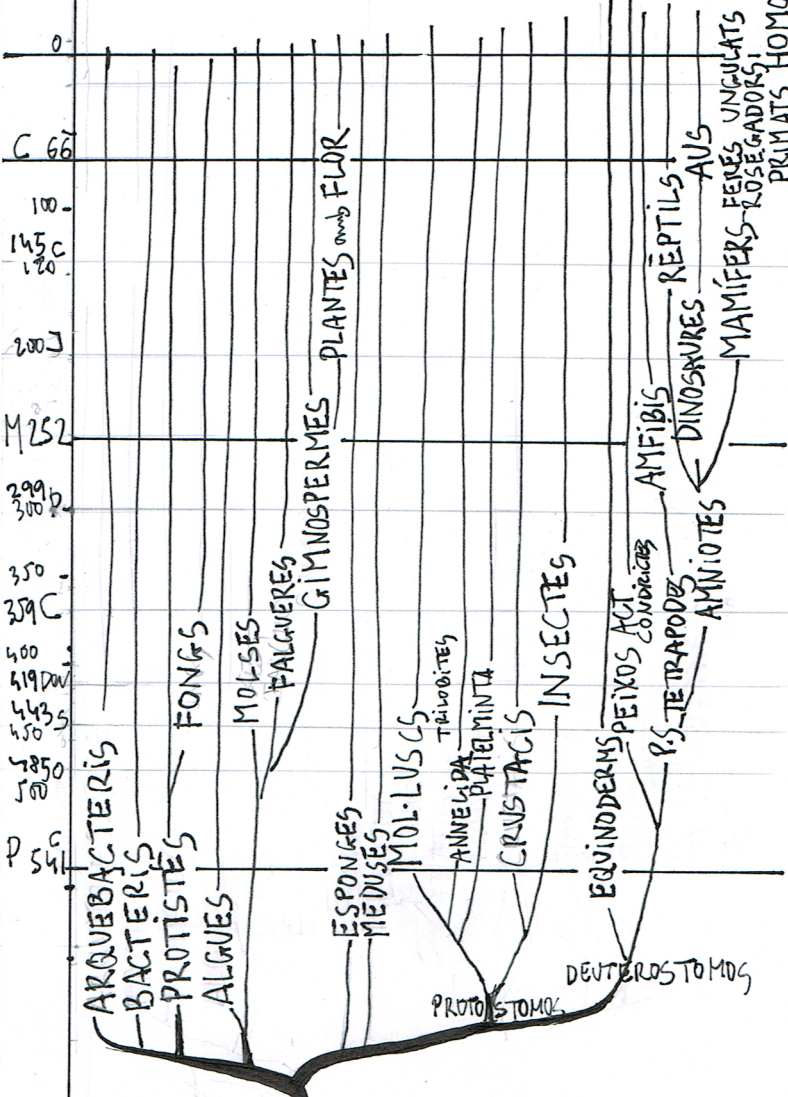 0
C 66
100
145 C
120
200 J
M 252
299 P
300
350
359 C
400
419 DOV
443 S
450
4850
500
P 541 C
ARQUEBACTERIS
BACTERIS
PROTISTES
FONGS
ALGUES
MOLSES
FALGUERES
GIMNOSPERMES
PLANTES amb FLOR
ESPONGES
MEDUSES
MOL·LUSCS
TRILOBITES
ANNELIDA
PLATELMINTA
CRUSTACIS
INSECTES
PROTOSTOMOS
EQUINODERMS
PEIXOS ACT.
CONDRICTES
P.S. TETRAPODES
DEUTEROSTOMOS
AMFIBIS
AMNIOTES
REPTILS
DINOSAURES
AUS
MAMÍFERS FERES UNGULATS
ROSEGADORS,
PRIMATS HOMO